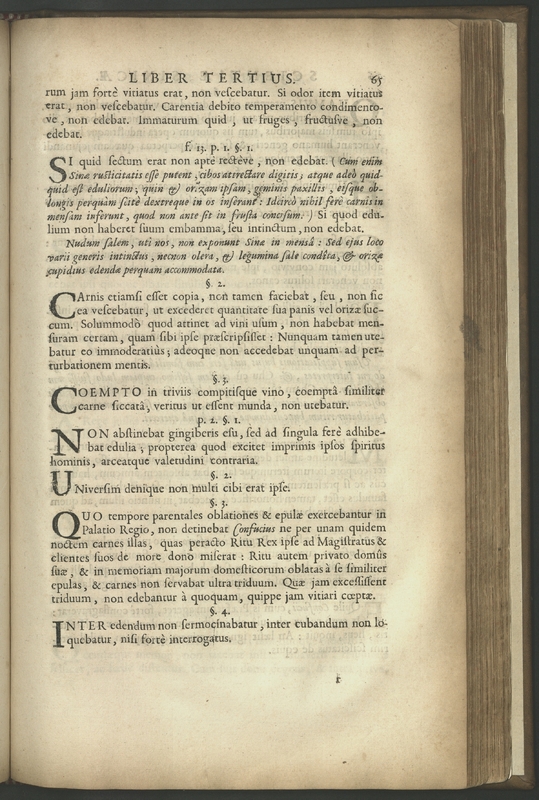 LIBER TERTIUS. 65
rum jam fortè vitiatus erat, non vescebatur. Si odor item vitiatus
erat, non vescebatur. Carentia debito temperamento condimento-
ve, non edebat. Immaturum quid, ut fruges, fructusve, non
edebat.
f. 13. p. 1. §. 1.
SI quid sectum erat non aptè rectève, non edebat. (Cum enim
Sinæ rusticitatis esse putent, cibos attrectare digitis; atque adeò quid-
quid est eduliorum; quin & orizam ipsam, geminis paxillis, eisque ob-
longis perquàm scitè dextreque in os inserant: Idcircò nihil ferè carnis in
mensam inferunt, quod non ante sit in frusta concisum.) Si quod edu-
lium non haberet suum embamma, seu intinctum, non edebat.
Nudum salem, uti nos, non exponunt Sinæ in mensâ: Sed ejus loco
varii generis intinctus, necnon olera, & legumina sale condita, & orizæ
cupidius edendæ perquam accommodata.
§. 2.
CArnis etiamsi esset copia, non tamen faciebat, seu, non sic
ea vescebatur, ut excederet quantitate sua panis vel orizæ suc-
cum. Solummodò quod attinet ad vini usum, non habebat men-
suram certam, quam sibi ipse præscripsisset: Nunquam tamen ute-
batur eo immoderatiùs; adeoque non accedebat unquam ad per-
turbationem mentis.
§. 3.
COEMPTO in triviis compitisque vino, coemptâ similiter
carne siccatâ, veritus ut essent munda, non utebatur.
p. 2. §. 1.
NON abstinebat gingiberis esu, sed ad singula ferè adhibe-
bat edulia; propterea quod excitet imprimis ipsos spiritus
hominis, arceatque valetudini contraria.
§. 2.
UNiversim denique non multi cibi erat ipse.
§. 3.
QUO tempore parentales oblationes & epulæ exercebantur in
Palatio Regio, non detinebat Confucius ne per unam quidem
noctem carnes illas, quas peracto Ritu Rex ipse ad Magistratus &
clientes suos de more dono miserat: Ritu autem privato domûs
suæ, & in memoriam majorum domesticorum oblatas à se similiter
epulas, & carnes non servabat ultra triduum. Quæ jam excessissent
triduum, non edebantur à quoquam, quippe jam vitiari cœptæ.
§. 4.
INTER edendum non sermocinabatur, inter cubandum non lo-
quebatur, nisi fortè interrogatus.